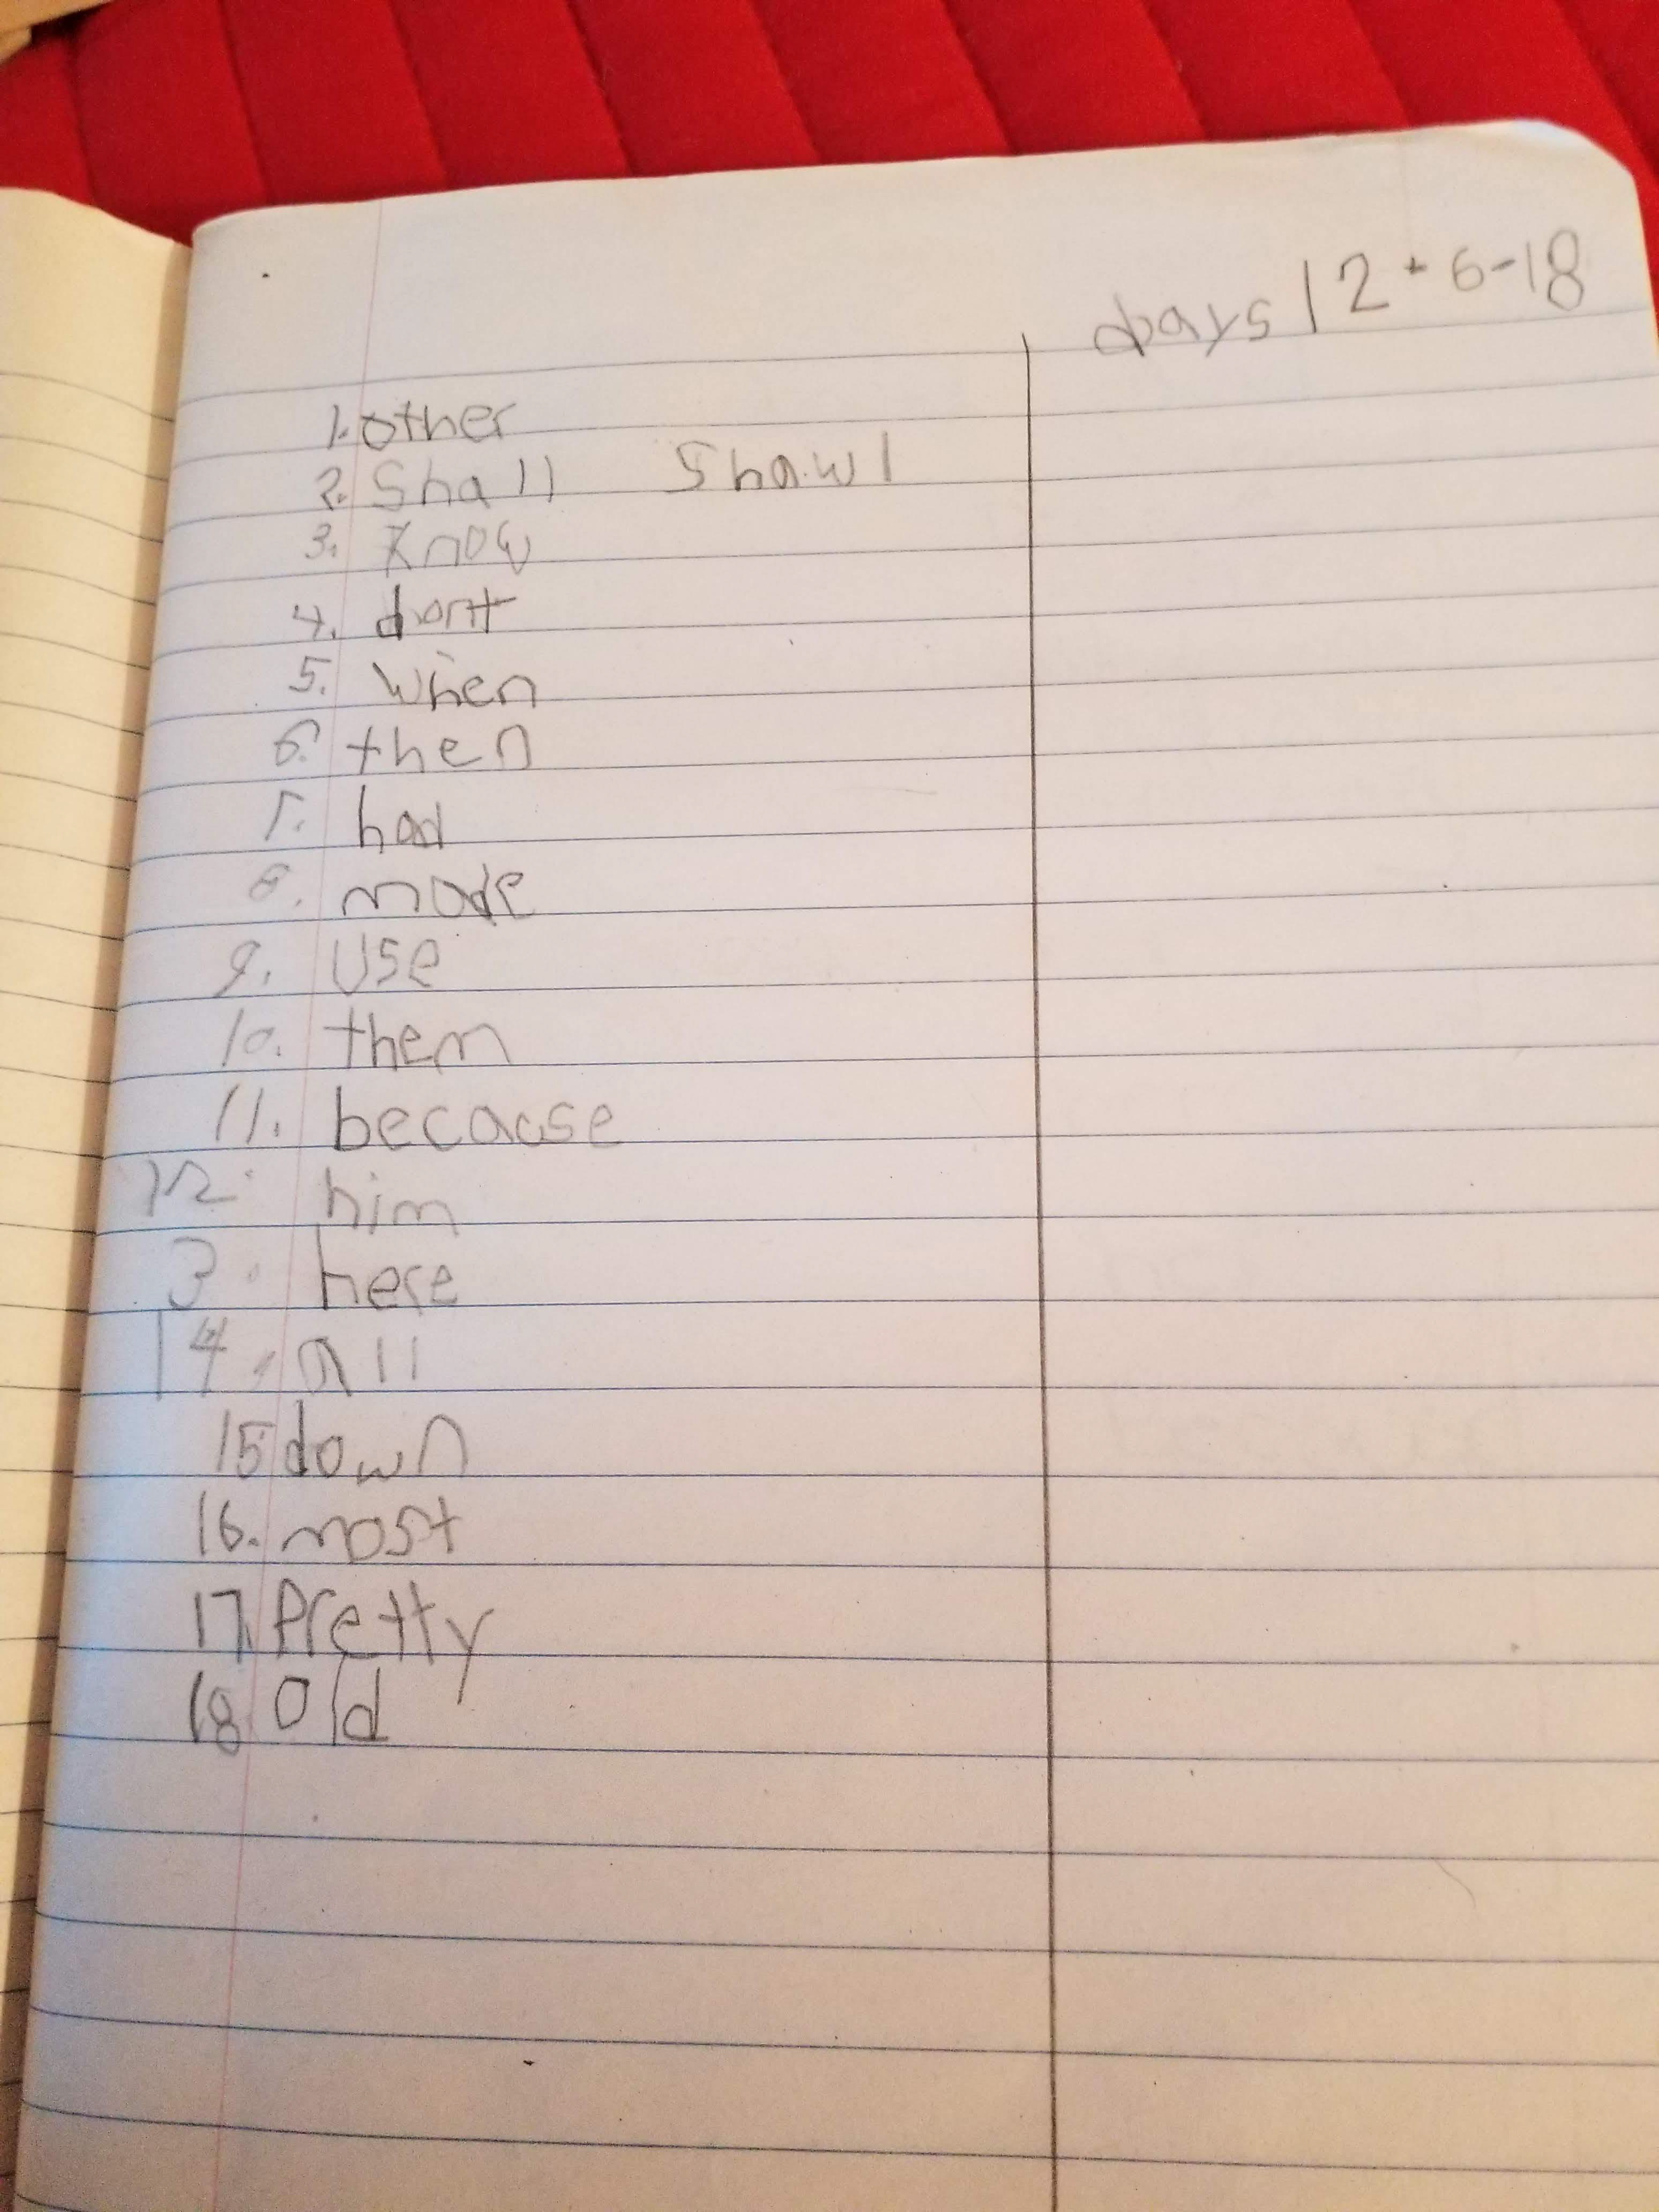 days 12-6-18
1. other
2. Shall Shawl
3. Know
4. dont
5. when
6. then
7. had
8. made
9. Use
10. them
11. because
12. him
3. here
14. all
15 down
16. most
17. Pretty
18. Old